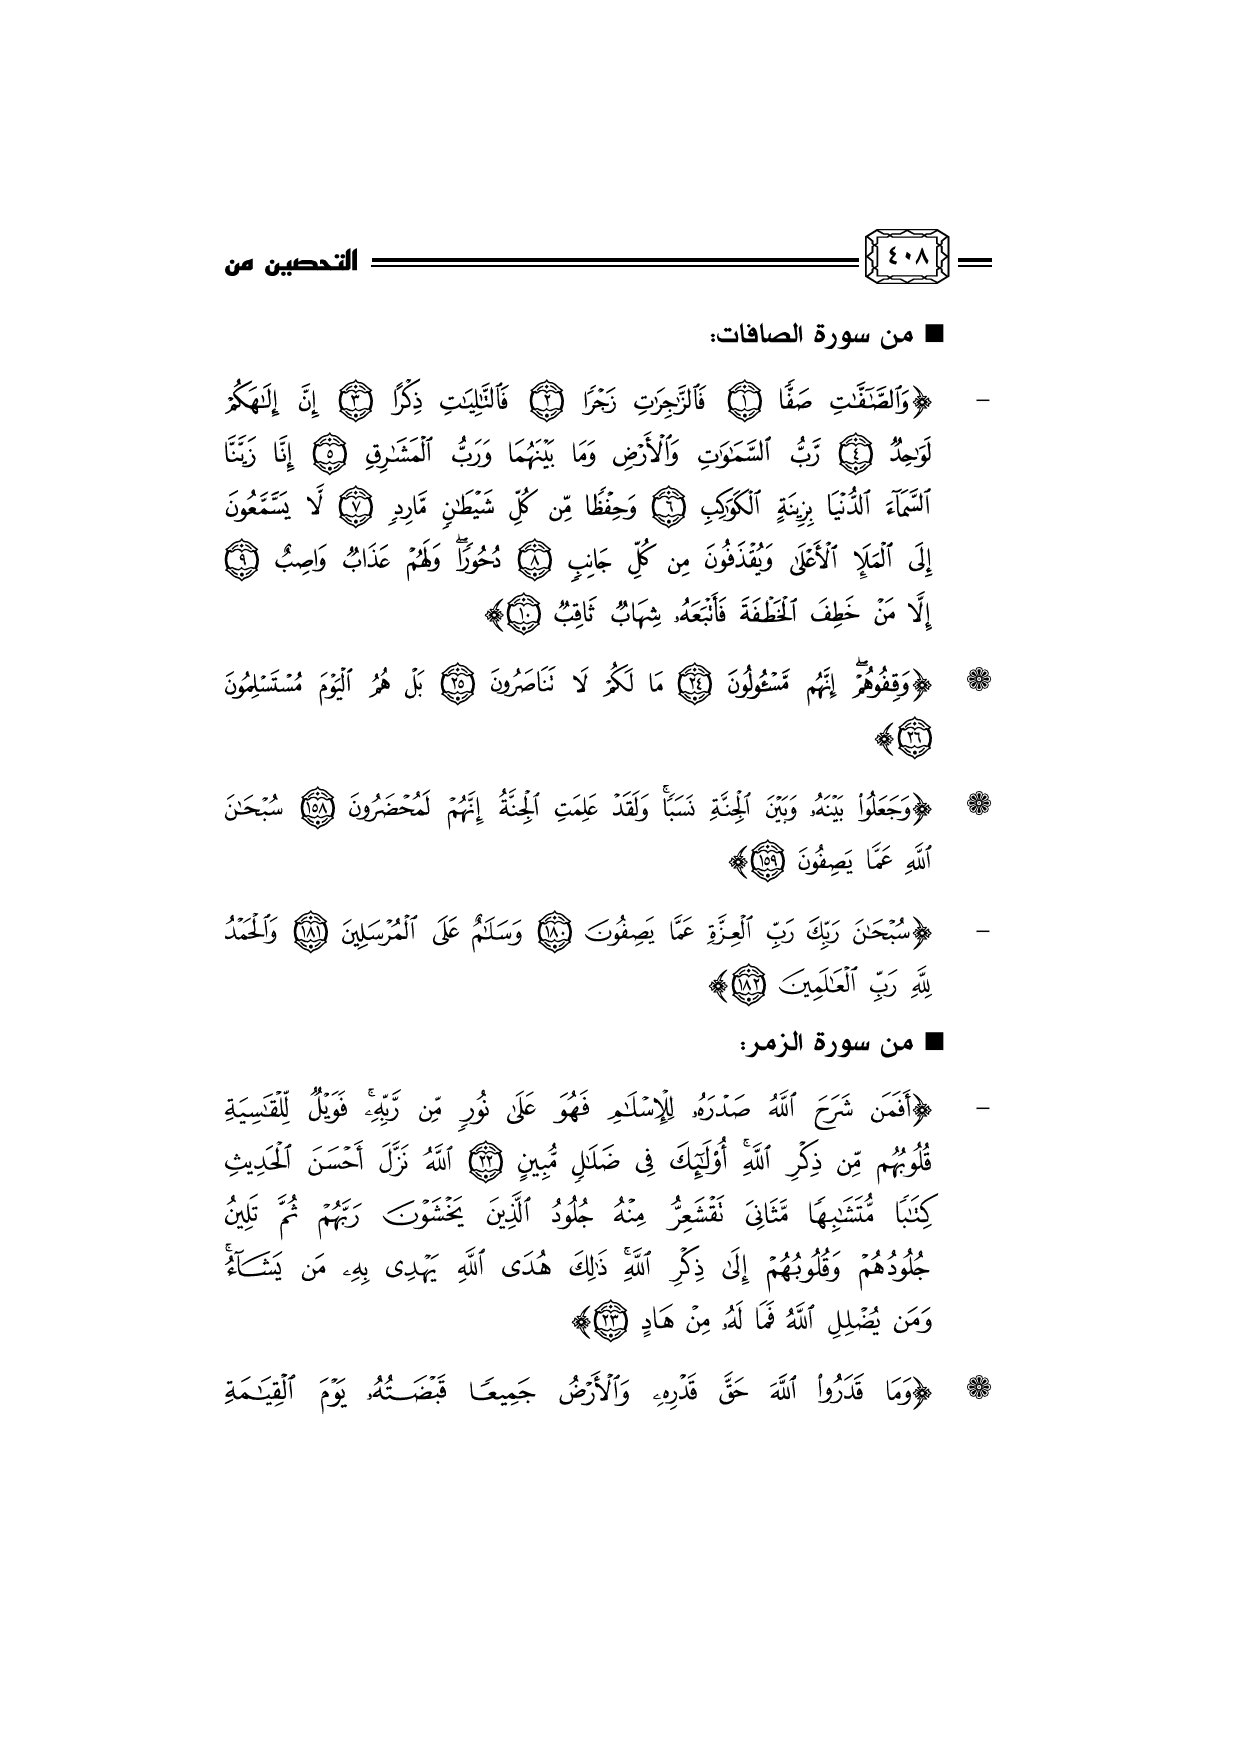 ٤٠٨ التحصين من
■ من سورة الصافات:
– ﴿وَٱلصَّٰٓفَّٰتِ صَفّٗا ١ فَٱلزَّٰجِرَٰتِ زَجۡرٗا ٢ فَٱلتَّٰلِيَٰتِ ذِكۡرًا ٣ إِنَّ إِلَٰهَكُمۡ
لَوَٰحِدٞ ٤ رَّبُّ ٱلسَّمَٰوَٰتِ وَٱلۡأَرۡضِ وَمَا بَيۡنَهُمَا وَرَبُّ ٱلۡمَشَٰرِقِ ٥ إِنَّا زَيَّنَّا
ٱلسَّمَآءَ ٱلدُّنۡيَا بِزِينَةٍ ٱلۡكَوَاكِبِ ٦ وَحِفۡظٗا مِّن كُلِّ شَيۡطَٰنٖ مَّارِدٖ ٧ لَّا يَسَّمَّعُونَ
إِلَى ٱلۡمَلَإِ ٱلۡأَعۡلَىٰ وَيُقۡذَفُونَ مِن كُلِّ جَانِبٖ ٨ دُحُورٗاۖ وَلَهُمۡ عَذَابٞ وَاصِبٌ ٩
إِلَّا مَنۡ خَطِفَ ٱلۡخَطۡفَةَ فَأَتۡبَعَهُۥ شِهَابٞ ثَاقِبٞ ١٠﴾
❁ ﴿وَقِفُوهُمۡۖ إِنَّهُم مَّسۡـُٔولُونَ ٢٤ مَا لَكُمۡ لَا تَنَاصَرُونَ ٢٥ بَلۡ هُمُ ٱلۡيَوۡمَ مُسۡتَسۡلِمُونَ
٢٦﴾
❁ ﴿وَجَعَلُواْ بَيۡنَهُۥ وَبَيۡنَ ٱلۡجِنَّةِ نَسَبٗاۚ وَلَقَدۡ عَلِمَتِ ٱلۡجِنَّةُ إِنَّهُمۡ لَمُحۡضَرُونَ ١٥٨ سُبۡحَٰنَ
ٱللَّهِ عَمَّا يَصِفُونَ ١٥٩﴾
– ﴿سُبۡحَٰنَ رَبِّكَ رَبِّ ٱلۡعِزَّةِ عَمَّا يَصِفُونَ ١٨٠ وَسَلَٰمٌ عَلَى ٱلۡمُرۡسَلِينَ ١٨١ وَٱلۡحَمۡدُ
لِلَّهِ رَبِّ ٱلۡعَٰلَمِينَ ١٨٢﴾
■ من سورة الزمر:
– ﴿أَفَمَن شَرَحَ ٱللَّهُ صَدۡرَهُۥ لِلۡإِسۡلَٰمِ فَهُوَ عَلَىٰ نُورٖ مِّن رَّبِّهِۦۚ فَوَيۡلٞ لِّلۡقَٰسِيَةِ
قُلُوبُهُم مِّن ذِكۡرِ ٱللَّهِۚ أُوْلَٰٓئِكَ فِي ضَلَٰلٖ مُّبِينٍ ٢٢ ٱللَّهُ نَزَّلَ أَحۡسَنَ ٱلۡحَدِيثِ
كِتَٰبٗا مُّتَشَٰبِهٗا مَّثَانِيَ تَقۡشَعِرُّ مِنۡهُ جُلُودُ ٱلَّذِينَ يَخۡشَوۡنَ رَبَّهُمۡ ثُمَّ تَلِينُ
جُلُودُهُمۡ وَقُلُوبُهُمۡ إِلَىٰ ذِكۡرِ ٱللَّهِۚ ذَٰلِكَ هُدَى ٱللَّهِ يَهۡدِي بِهِۦ مَن يَشَآءُۚ
وَمَن يُضۡلِلِ ٱللَّهُ فَمَا لَهُۥ مِنۡ هَادٍ ٢٣﴾
❁ ﴿وَمَا قَدَرُواْ ٱللَّهَ حَقَّ قَدۡرِهِۦ وَٱلۡأَرۡضُ جَمِيعٗا قَبۡضَتُهُۥ يَوۡمَ ٱلۡقِيَٰمَةِ